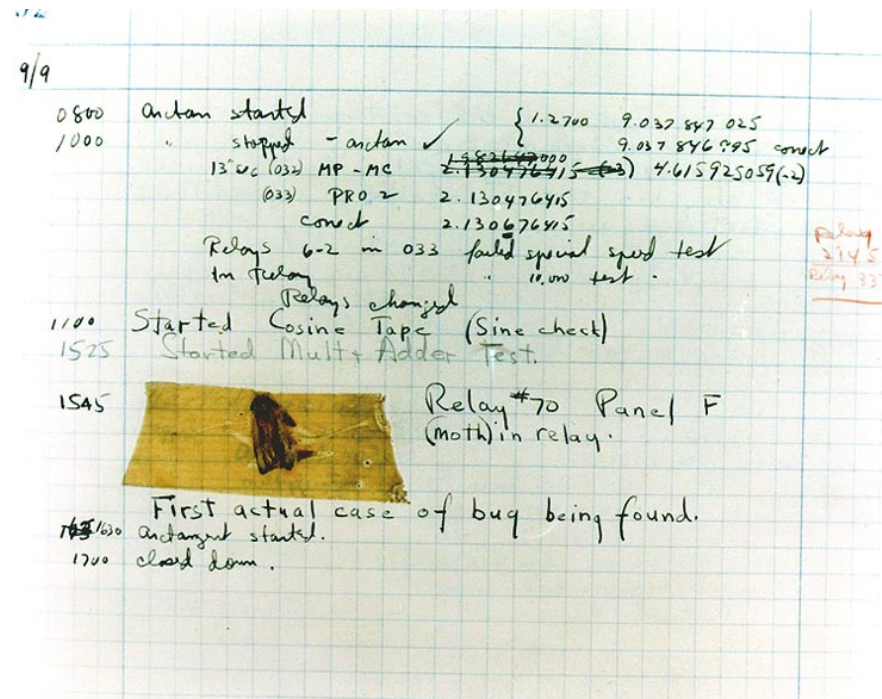 9/9
0800 Antan started { 1.2700 9.037 847 025
1000 " stopped - antan ✓ 9.037 846 995 correct
13"uc (032) MP - MC 2.130476415 4.615925059(-2)
(033) PRO 2 2.130476415
correct 2.130676415
Relays 6-2 in 033 failed special speed test
In Relay " 10,000 test.
Relays changed
1100 Started Cosine Tape (Sine check)
1525 Started Mult+ Adder Test.
1545 Relay #70 Panel F
(moth) in relay.
First actual case of bug being found.
1630 Antangent started.
1700 closed down.
Relay
2145
Relay 337